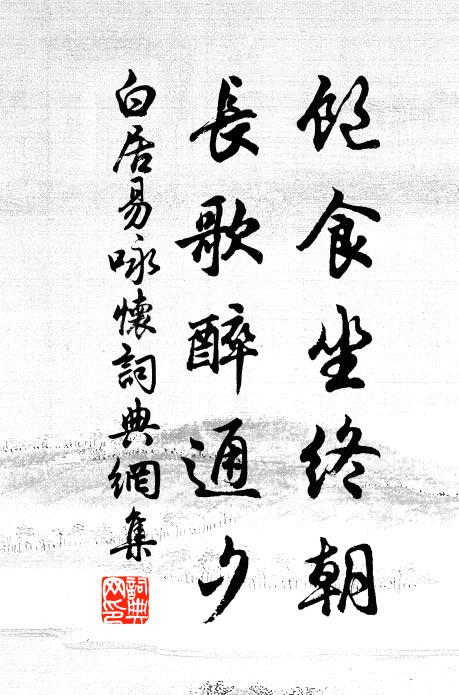 飽食坐終朝
長歌醉通夕
白居易咏懷詞典網集
詞典网印